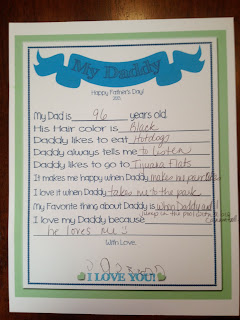 My Daddy
Happy Father's Day!
2015
My Dad is 96 years old.
His Hair color is Black
Daddy likes to eat Hotdogs
Daddy always tells me to listen
Daddy likes to go to Tijuana Flats
It makes me happy when Daddy make me pancakes
I love it when Daddy takes me to the park
My Favorite thing about Daddy is when Daddy and I
jump in the pool
I love my Daddy because
he loves me
With Love,
I LOVE YOU!